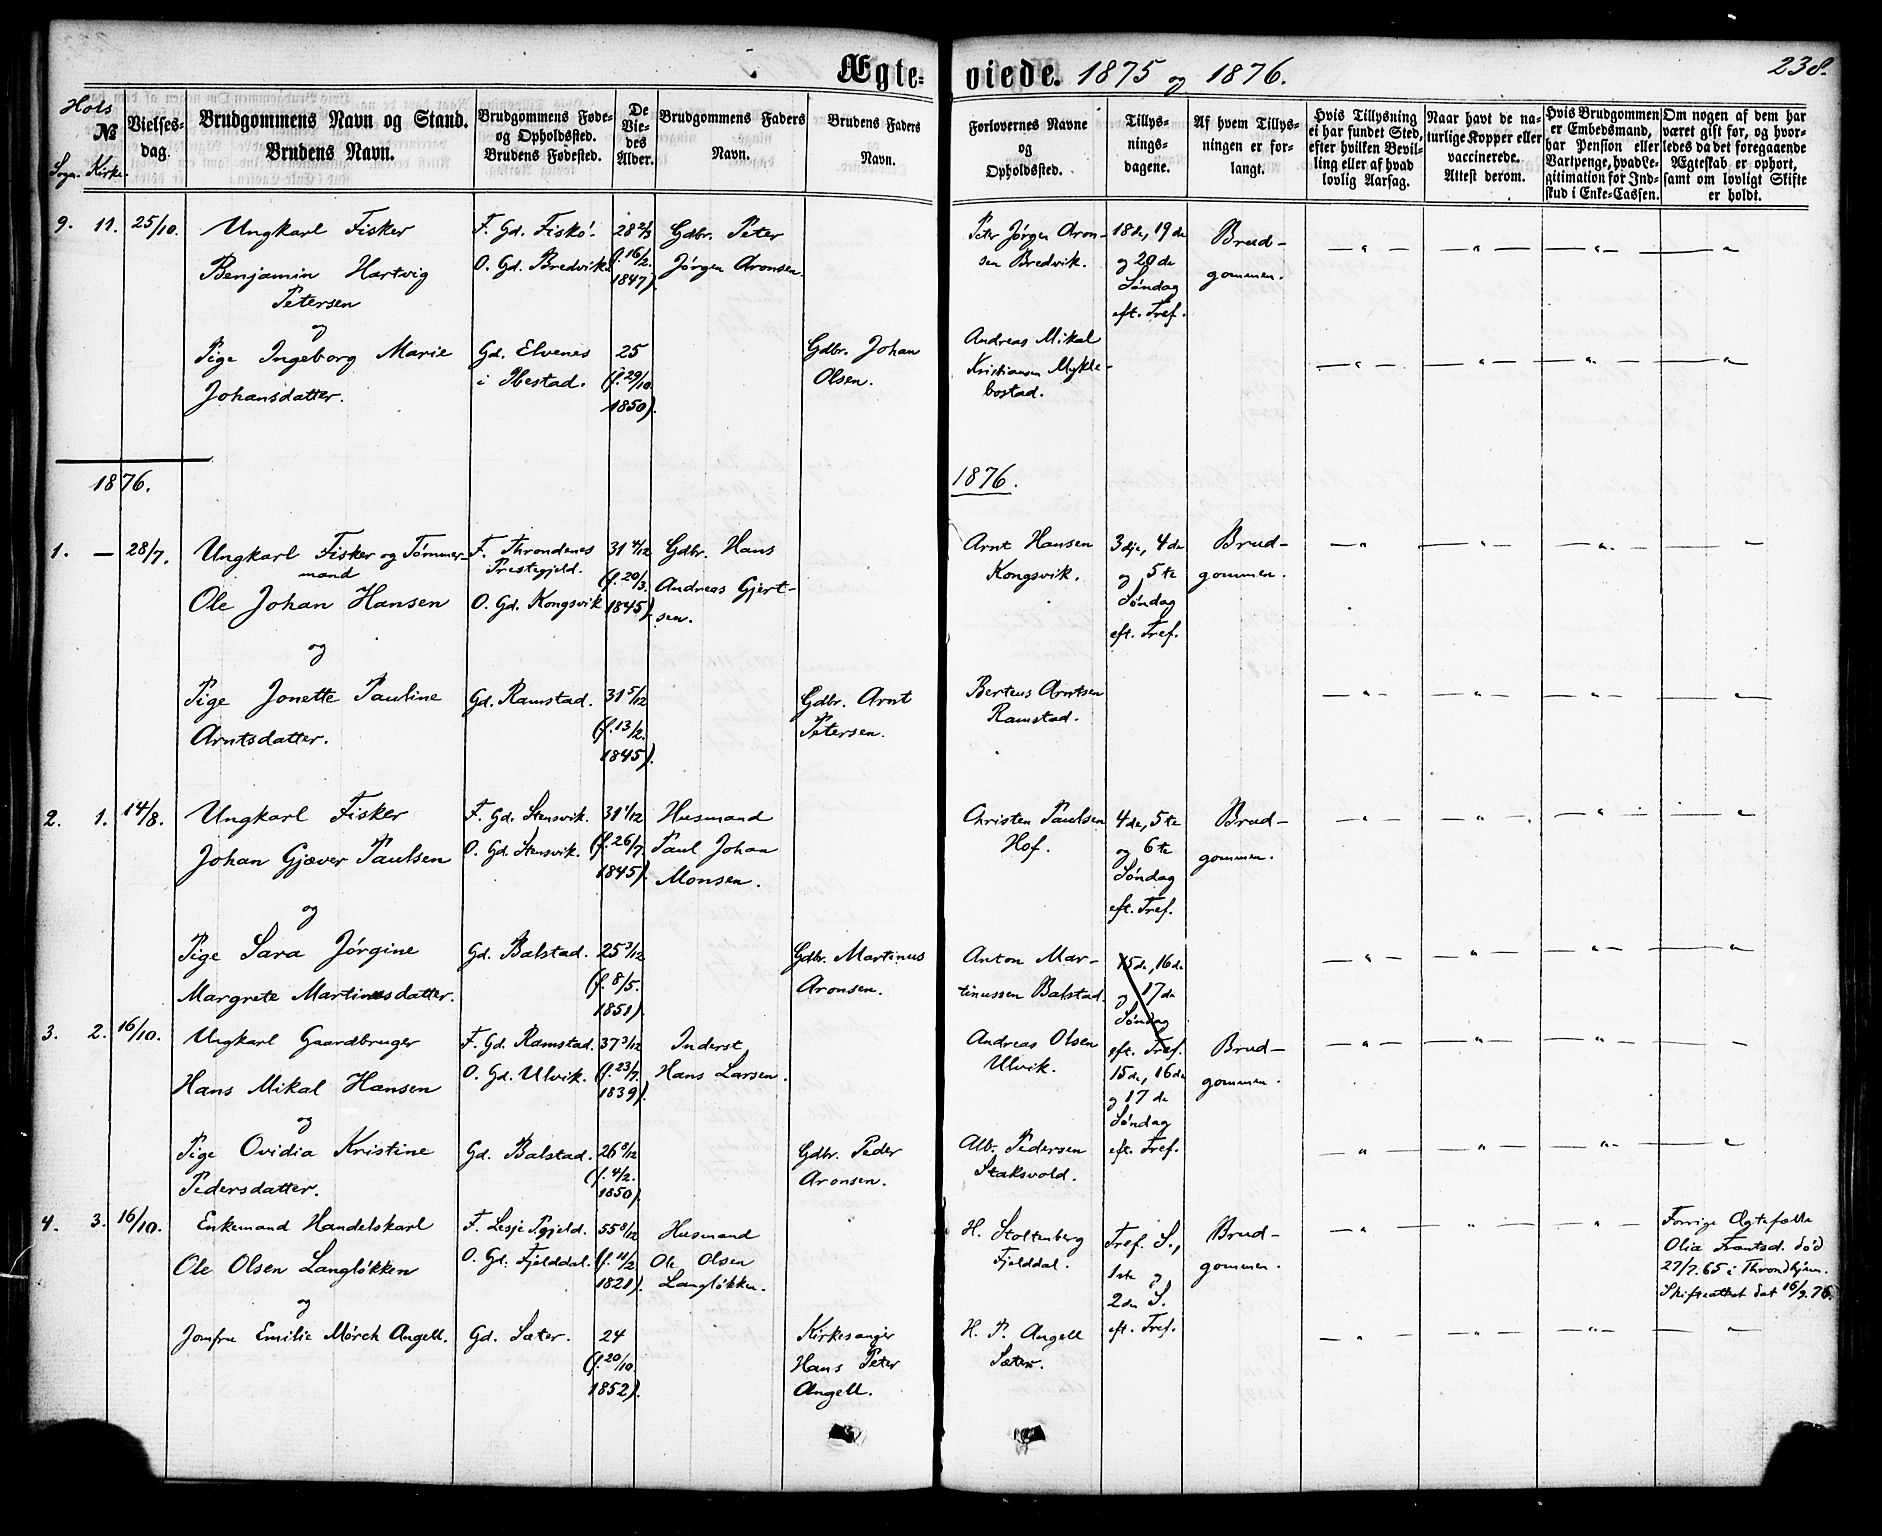 Ægte-
viede. 1875 og 1876.
238.
Hols
Sogn. Kirke.
№
Vielses-
dag.
Brudgommens Navn og Stand.
Brudens Navn.
Brudgommens Føde-
og Opholdssted.
Brudens Fødested.
De
Vie-
des
Alder.
Brudgommens Faders
Navn.
Brudens Faders
Navn.
Forlovernes Navne
og
Opholdssted.
Tillys-
nings-
dagene.
Af hvem Tillys-
ningen er for-
langt.
Hvis Tillysning
ei har fundet Sted,
efter hvilken Bevil-
ling eller af hvad
lovlig Aarsag.
Naar havt de na-
turlige Kopper eller
vaccinerede.
Attest derom.
Hvis Brudgommen
er Embedsmand,
har Pension eller
Vartpenge, hvad Le-
gitimation for Ind-
skud i Enke-Cassen.
Om nogen af dem har
været gift før, og hvor-
ledes da det foregaaende
Ægteskab er ophørt,
samt om lovligt Skifte
er holdt.
9. 11. 25/10.
Ungkarl Fisker
Benjamin Hartvig
Petersen
og
Pige Ingeborg Marie
Johansdatter.
F. Gd. Fiskö.
O. Gd. Bredvik.
Gd. Elvenes
i Ibestad.
28 2/3
(f. 16/2.
1847).
25
(f. 29/10.
1850).
Gdbr. Peter
Jörgen Aronsen.
Gdbr. Johan
Olsen.
Peter Jörgen Aron-
sen Bredvik.
Andreas Mikal
Kristiansen Mykle-
bostad.
18de, 19de
og 20de
Söndag
eft. Tref.
Brud-
gommen.
1876.
1876.
1. — 28/7.
Ungkarl Fisker og Tömmer-
mand
Ole Johan Hansen
og
Pige Jonette Pauline
Arntsdatter.
F. Throndenes
Prestegjeld.
O. Gd. Kongsvik
Gd. Ramstad.
31 4/12
(f. 20/3.
1845).
31 5/12
(f. 13/2.
1845).
Gdbr. Hans
Andreas Gjert-
sen.
Gdbr. Arnt
Petersen.
Arnt Hansen
Kongsvik.
Berteus Arntsen
Ramstad.
3dje, 4de
og 5te
Söndag
eft. Tref.
Brud-
gommen.
2. 1. 14/8.
Ungkarl Fisker
Johan Gjæver Paulsen
og
Pige Sara Jörgine
Margrete Martinusdatter.
F. Gd. Stensvik.
O. Gd. Stensvik.
Gd. Balstad.
31 1/12
(f. 26/7.
1845).
25 3/12
(f. 8/5.
1851).
Husmand
Paul Johan
Monsen.
Gdbr. Martinus
Aronsen.
Christen Paulsen
Hof.
Anton Mar-
tinussen Balstad.
4de, 5te
og 6te
Söndag
eft. Tref.
15de, 16de
og 17de
Söndag
eft. Tref.
Brud-
gommen.
3. 2. 16/10.
Ungkarl Gaardbruger
Hans Mikal Hansen
og
Pige Ovidia Kristine
Pedersdatter.
F. Gd. Ramstad.
O. Gd. Ulvik.
Gd. Balstad.
37 3/12
(f. 23/7.
1839).
26 8/12
(f. 4/2.
1850).
Inderst
Hans Larsen.
Gdbr. Peder
Aronsen.
Andreas Olsen
Ulvik.
Alb. Pedersen
Staksvold.
15de, 16de
og 17de
Söndag
eft. Tref.
Brud-
gommen.
4. 3. 16/10.
Enkemand Handelskarl
Ole Olsen Langlökken
og
Jomfru Emilie Mörch Angell.
F. Lesje Pgjeld.
O. Gd. Fjelddal.
Gd. Sæter.
55 8/12
(f. 11/2.
1821).
24
(f. 20/10.
1852).
Husmand
Ole Olsen
Langlökken.
Kirkesanger
Hans Peter
Angell.
H. Stoltenberg
Fjelddal.
H. P. Angell
Sæter.
Tref. S.,
1ste og
2den S.
eft. Tref.
Brud-
gommen.
Forrige Ægtefælle
Olia Frantsd. död
27/7. 65 i Throndhjem.
Skifteattest dat 16/9. 76.